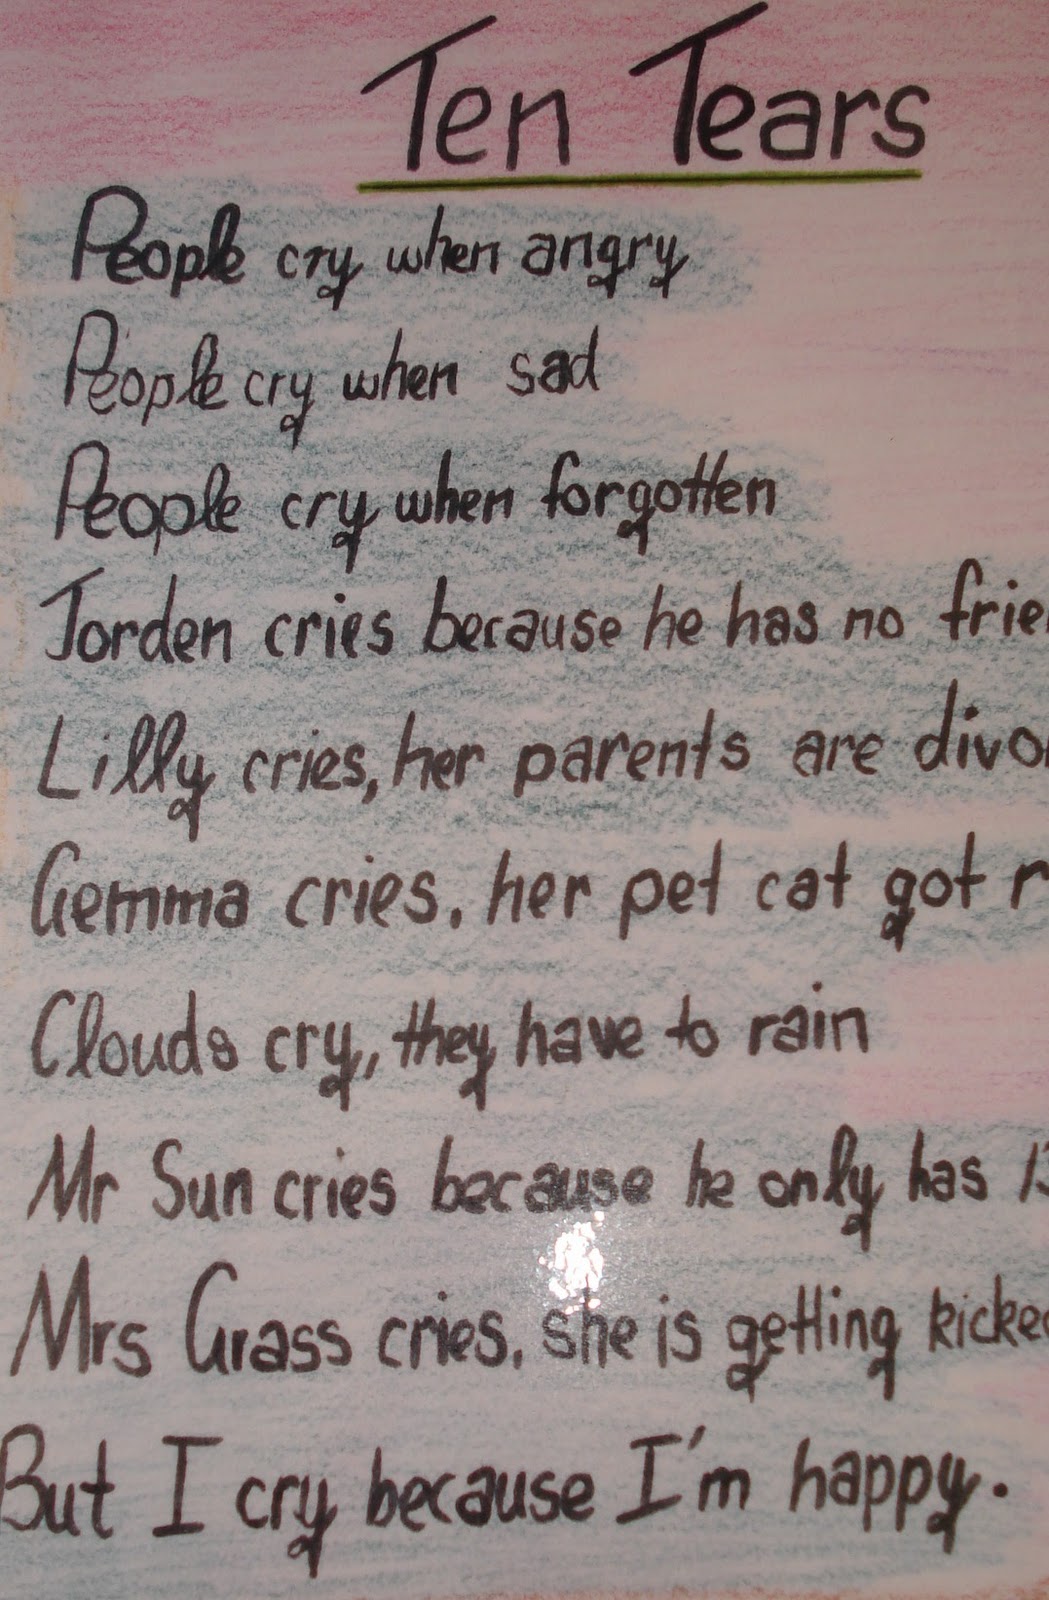 Ten Tears
People cry when angry
People cry when sad
People cry when forgotten
Jorden cries because he has no frie
Lilly cries, her parents are divo
Gemma cries, her pet cat got r
Clouds cry, they have to rain
Mr Sun cries because he only has 13
Mrs Grass cries, she is getting kicked
But I cry because I'm happy.